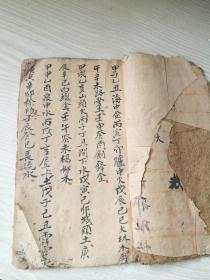 甲子乙丑海中金丙寅丁卯爐中火戊辰己巳大林木庚
午辛未路旁土壬申癸酉劍鋒金
甲戌乙亥山頭火丙子丁丑澗下水戊寅己卯城頭土庚
辰辛巳白蠟金壬午癸未楊柳木
甲申乙酉泉中水丙戌丁亥屋上土戊子己丑霹靂火
寅辛卯松柏木壬辰癸巳長流水